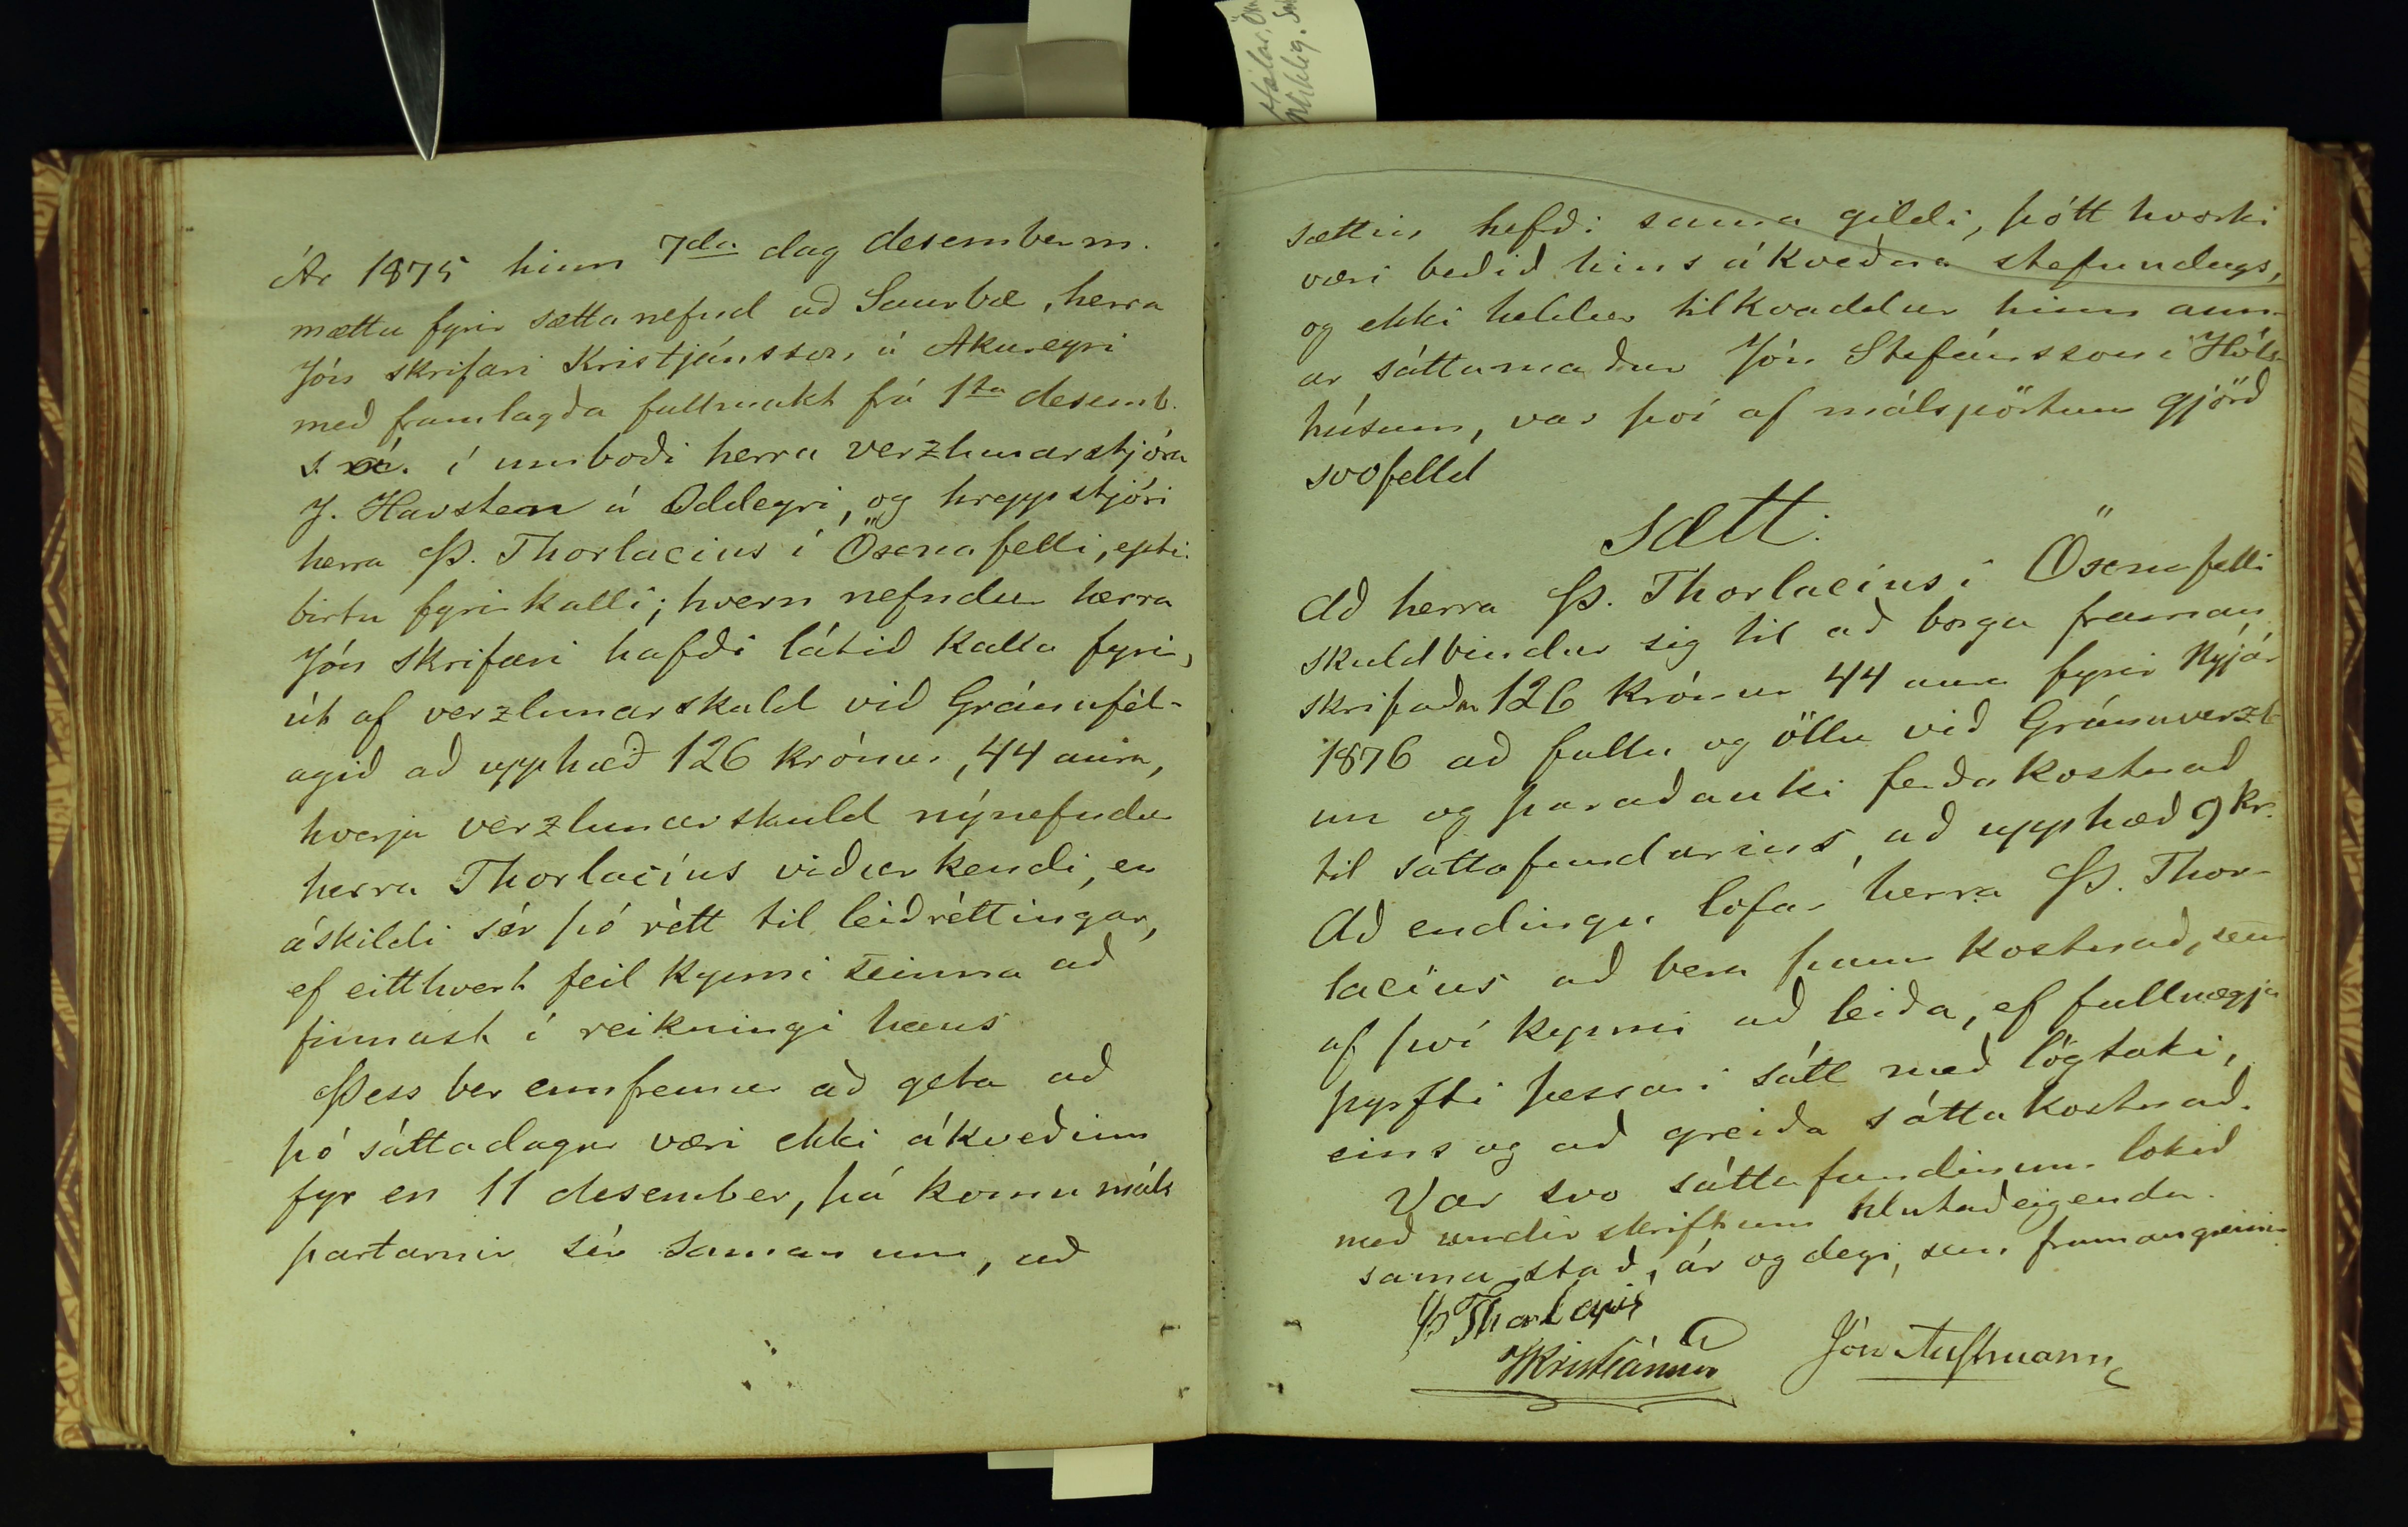 Ár 1875 hinn 7da dag desemberm.
mættu fyrir sættanefnd að Saurbæ, herra
Jón skrifari Kristjánsson á Akureyri
með framlagða fullmakt frá 1ta desemb.
s. á. í umboði herra verzlunarstjóra
J. Havsteen á Oddeyri, og hreppstjóri
herra Þ. Thorlacius í Öxnafelli, eptir
birtu fyrirkalli; hvern nefndur herra
Jón skrifari hafði látið kalla fyrir,
út af verzlunarskuld við Gránufél-
agið að upphæð 126 krónur, 44 aura,
hverja verzlunarskuld nýnefndur
herra Thorlacíus viðurkendi, en
áskildi sér þó rétt til leiðréttingar,
ef eitthvert feil kynni seinna að
finnast í reikningi hans
Þess ber ennfremur að geta að
þó sáttadagur væri ekki ákveðinn
fyr en 11 desember, þá komu máls
partarnir sér saman um, að
sættin hefði sama gildi, þótt hvorki
væri beðið hins ákveðna stefnudags,
og ekki heldur tilkvaddur hinn ann-
ar sáttamaður Jón Stefánsson í Hóls-
húsum, var því af málspörtum gjörð
svofelld
Sætt:
Að herra Þ. Thorlacíus í Öxnafelli
skuldbindur sig til að borga framan
skrifaðar 126 krónur 44 aura fyrir Nýjár
1876 að fullu og öllu við Gránuverzl
un og þar að auki ferðakostnað
til sáttafundarins, að upphæð 9 kr.
Að endingu lofar herra Þ. Thor-
lacíus að bera þann kostnað, sem
af því kynni að leiða, ef fullnægja
þyrfti þessari sátt með lögtaki,
eins og að greiða sáttakostnað.
Var svo sáttafundinum lokið
með undirskriftum hlutaðeigenda.
sama stað, ár og degi, sem framangreinir
Þ Thorlacius
JKristiánsson Jón Austmann
Hólar,